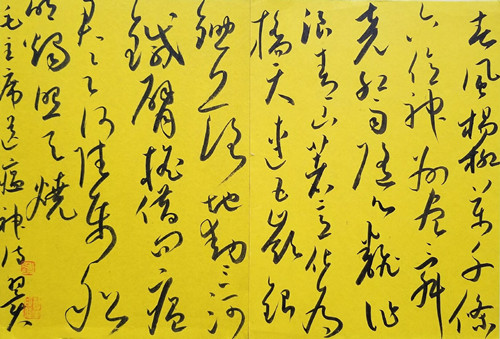 春風楊柳萬千條
六億神州盡舜
堯紅雨隨心翻作
浪青山著意化為
橋天連五嶺銀
鋤落地動三河
鐵臂搖借問瘟
君欲何往紙船
明燭照天燒
毛主席送瘟神詩